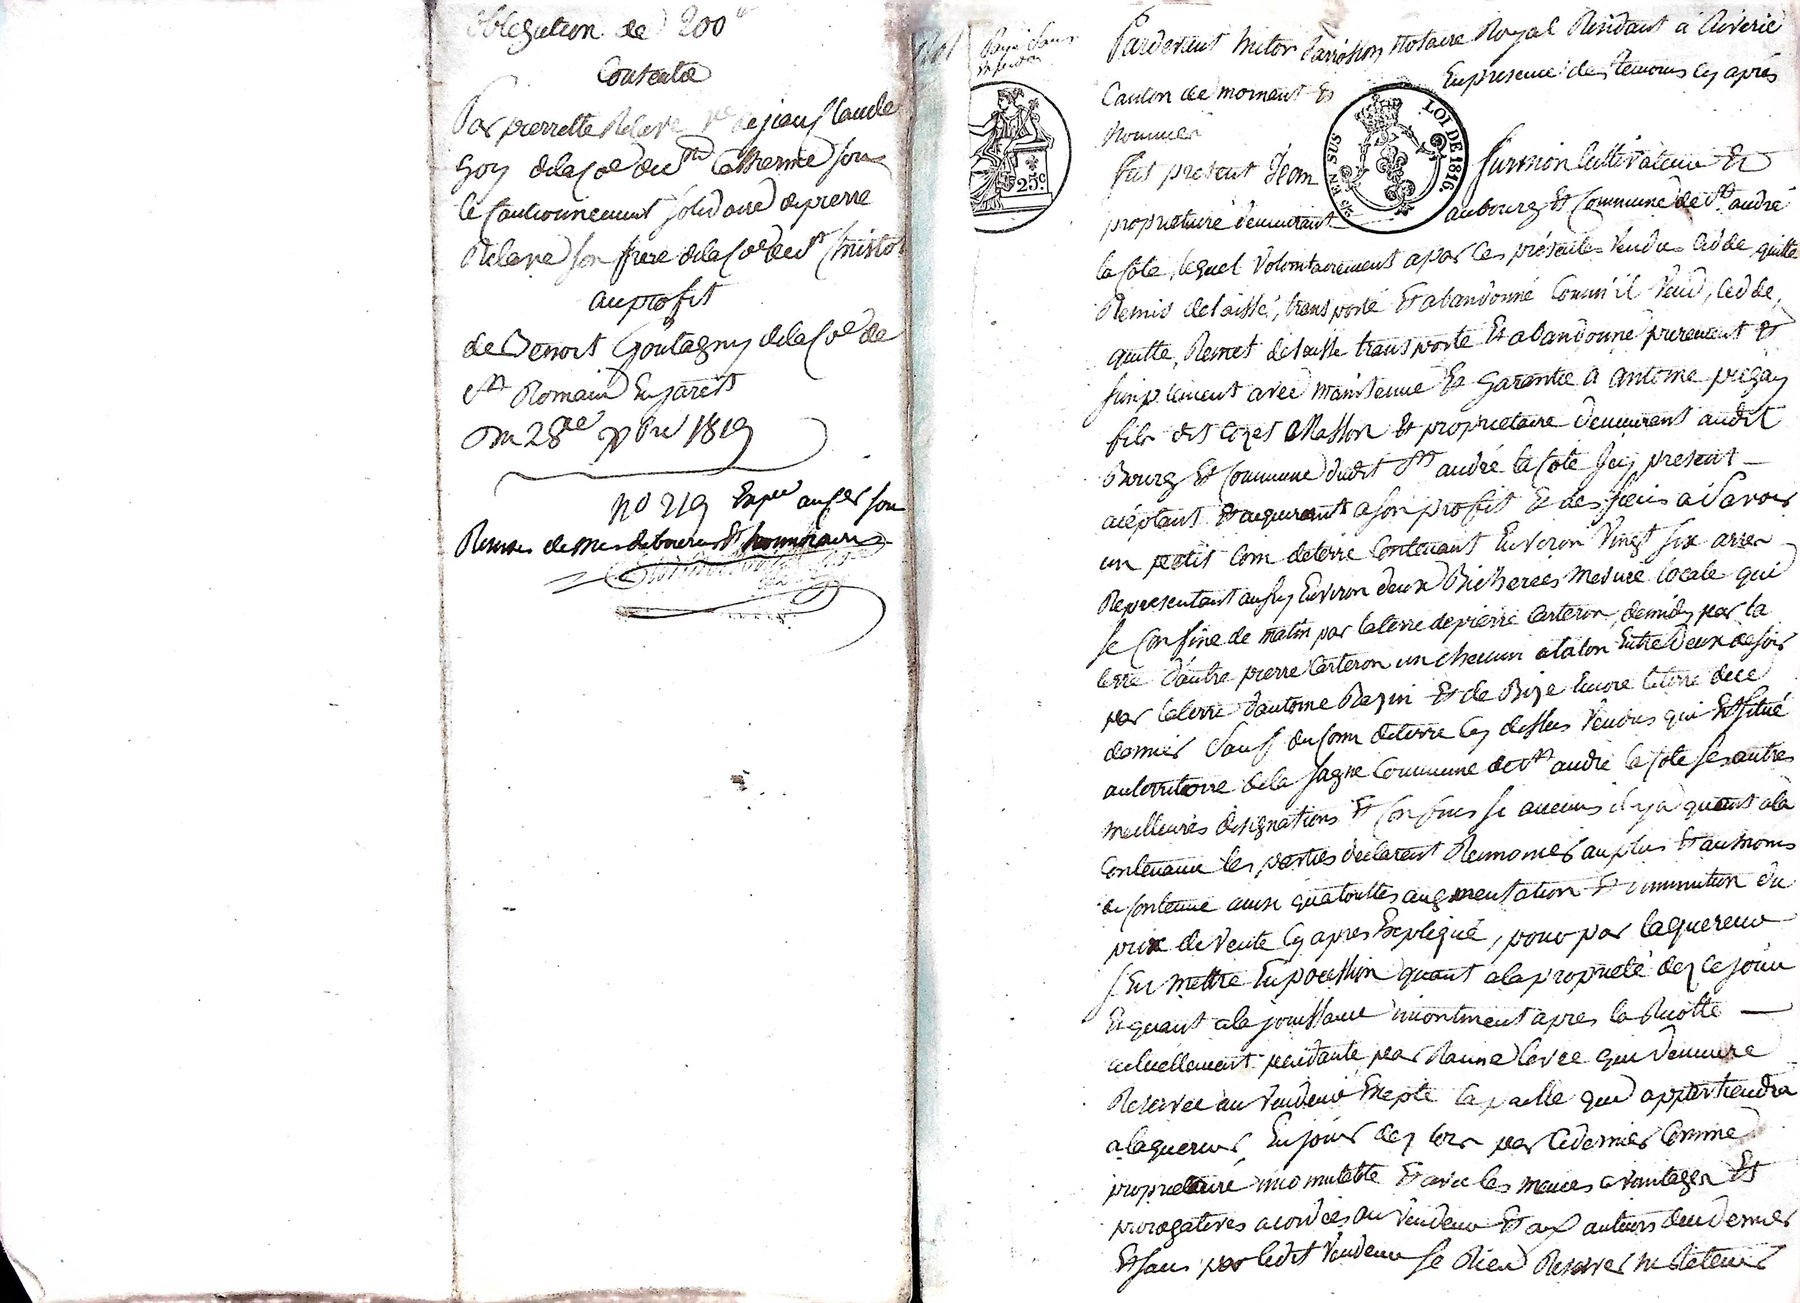 obligation de 200ᵗᵗ
Consentie
Par pierrette Relave vᵉ de jean Claude
Goy de la Cᵉ de Sᵗᵉ Catherine sous
le Cautionnement solidaire de pierre
Relave son frere de la Cᵉ de Sᵗ Christo
au profit
de Benoit Goutagny de la Cᵉ de
Sᵗ Romain En jarest
Du 28ᵉ 1819
nº 219 Expᵉ au Cᵉʳ sous
Reserve de mes debources et honnoraires
25ᶜ
EN SUS
LOI DE 1816
Pardevant notaire Royal Residant à Riverie
Canton de mornant Et En presence des temoins Cy après
Nommés
fut present Jean cultivateur Et
propriétaire demeurant au bourg Et Commune de Sᵗ andré
la Cote, lequel volontairement a par Ces présentes vendu Cédé quitté
Remis delaissé, transporté Et abandonné Comm'il vend, Cedde,
quitte, Remet delaisse transporte Et abandonne purement Et
simplement avec maintenue Et Garantie à antoine
fils dit Masson Et propriétaire demeurant audit
Bourg Et Commune dudit Sᵗ andré la Cote Icy present
aceptant Et aquerant a son profit Et des siens a Savoir
un petit Coin de terre Contenant Environ Vingt six ares
Representant aussy Environ deux Bicherées mesure locale qui
se Confine de matin par la terre de pierre Carteron, de midy par la
terre d'autre pierre Carteron un chemin a talon Entre deux de soir
par la terre d'antoine Et de Bize Encore la terre de ce
dernier Sauf du Coin de terre Cy dessus Vendus qui Est situé
au territoire de la fagne Commune de Sᵗ andré la Cote ses autres
meilleures designations Et Confins si aucuns il y a quant a la
Contenance les parties declarent Renoncer au plus Et au moins
de Contenue ainsi qua touttes augmentation Et diminution du
prix de vente Cy apres Expliqué, pour par laquereur
s'En mettre En possession quant a la propriété dez Ce jour
Et quant a la jouissance incontinent apres la Recolte
actuellement pendante par Racine levée qui demeure
Reservée au vendeur Excepté la paille qui appartiendra
a laquereur, En jouir dez lors par Ce dernier Comme
propriétaire incomutable Et avec les memes avantages Et
prerogatives acordées au vendeur Et aux auteurs de ce dernier
Et sans par ledit Vendeur se Rien Reserver ni Retenir